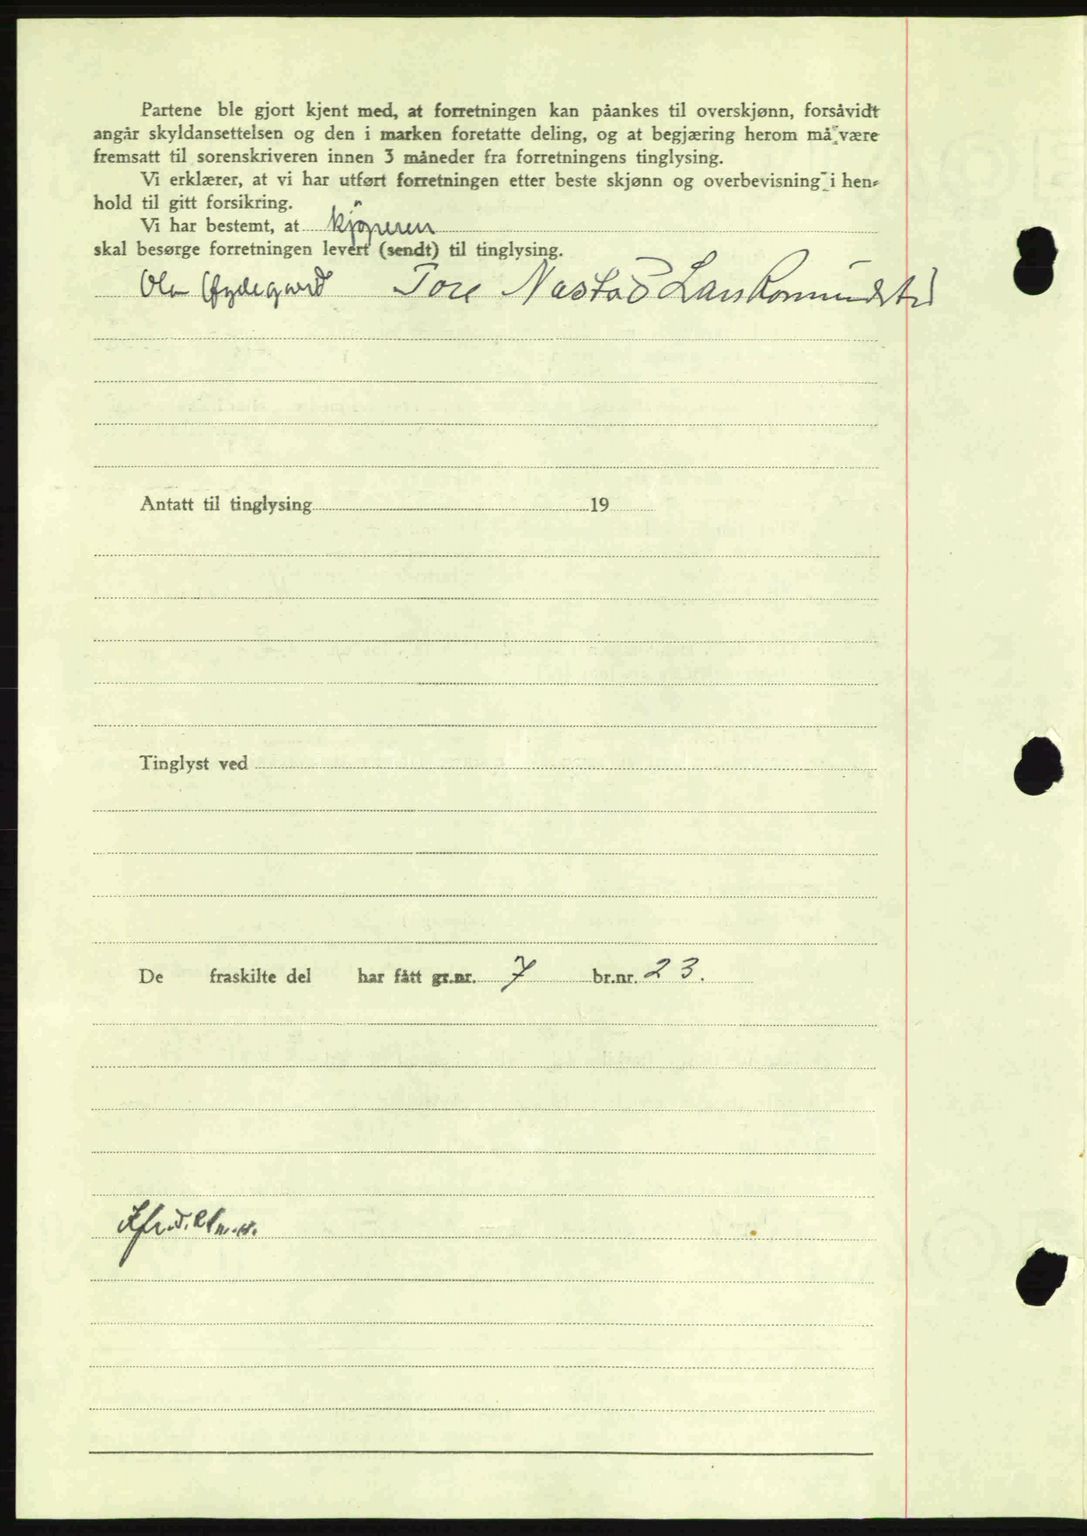 Partene ble gjort kjent med, at forretningen kan påankes til overskjønn, forsåvidt
angår skyldansettelsen og den i marken foretatte deling, og at begjæring herom må være
fremsatt til sorenskriveren innen 3 måneder fra forretningens tinglysing.
Vi erklærer, at vi har utført forretningen etter beste skjønn og overbevisning i hen-
hold til gitt forsikring.
Vi har bestemt, at kjøperen
skal besørge forretningen levert (sendt) til tinglysing.
Ola Øydegaard Tore Nastad Lars Romundstad
Antatt til tinglysing 19
Tinglyst ved
De fraskilte del har fått gr.nr. 7 br.nr. 23.